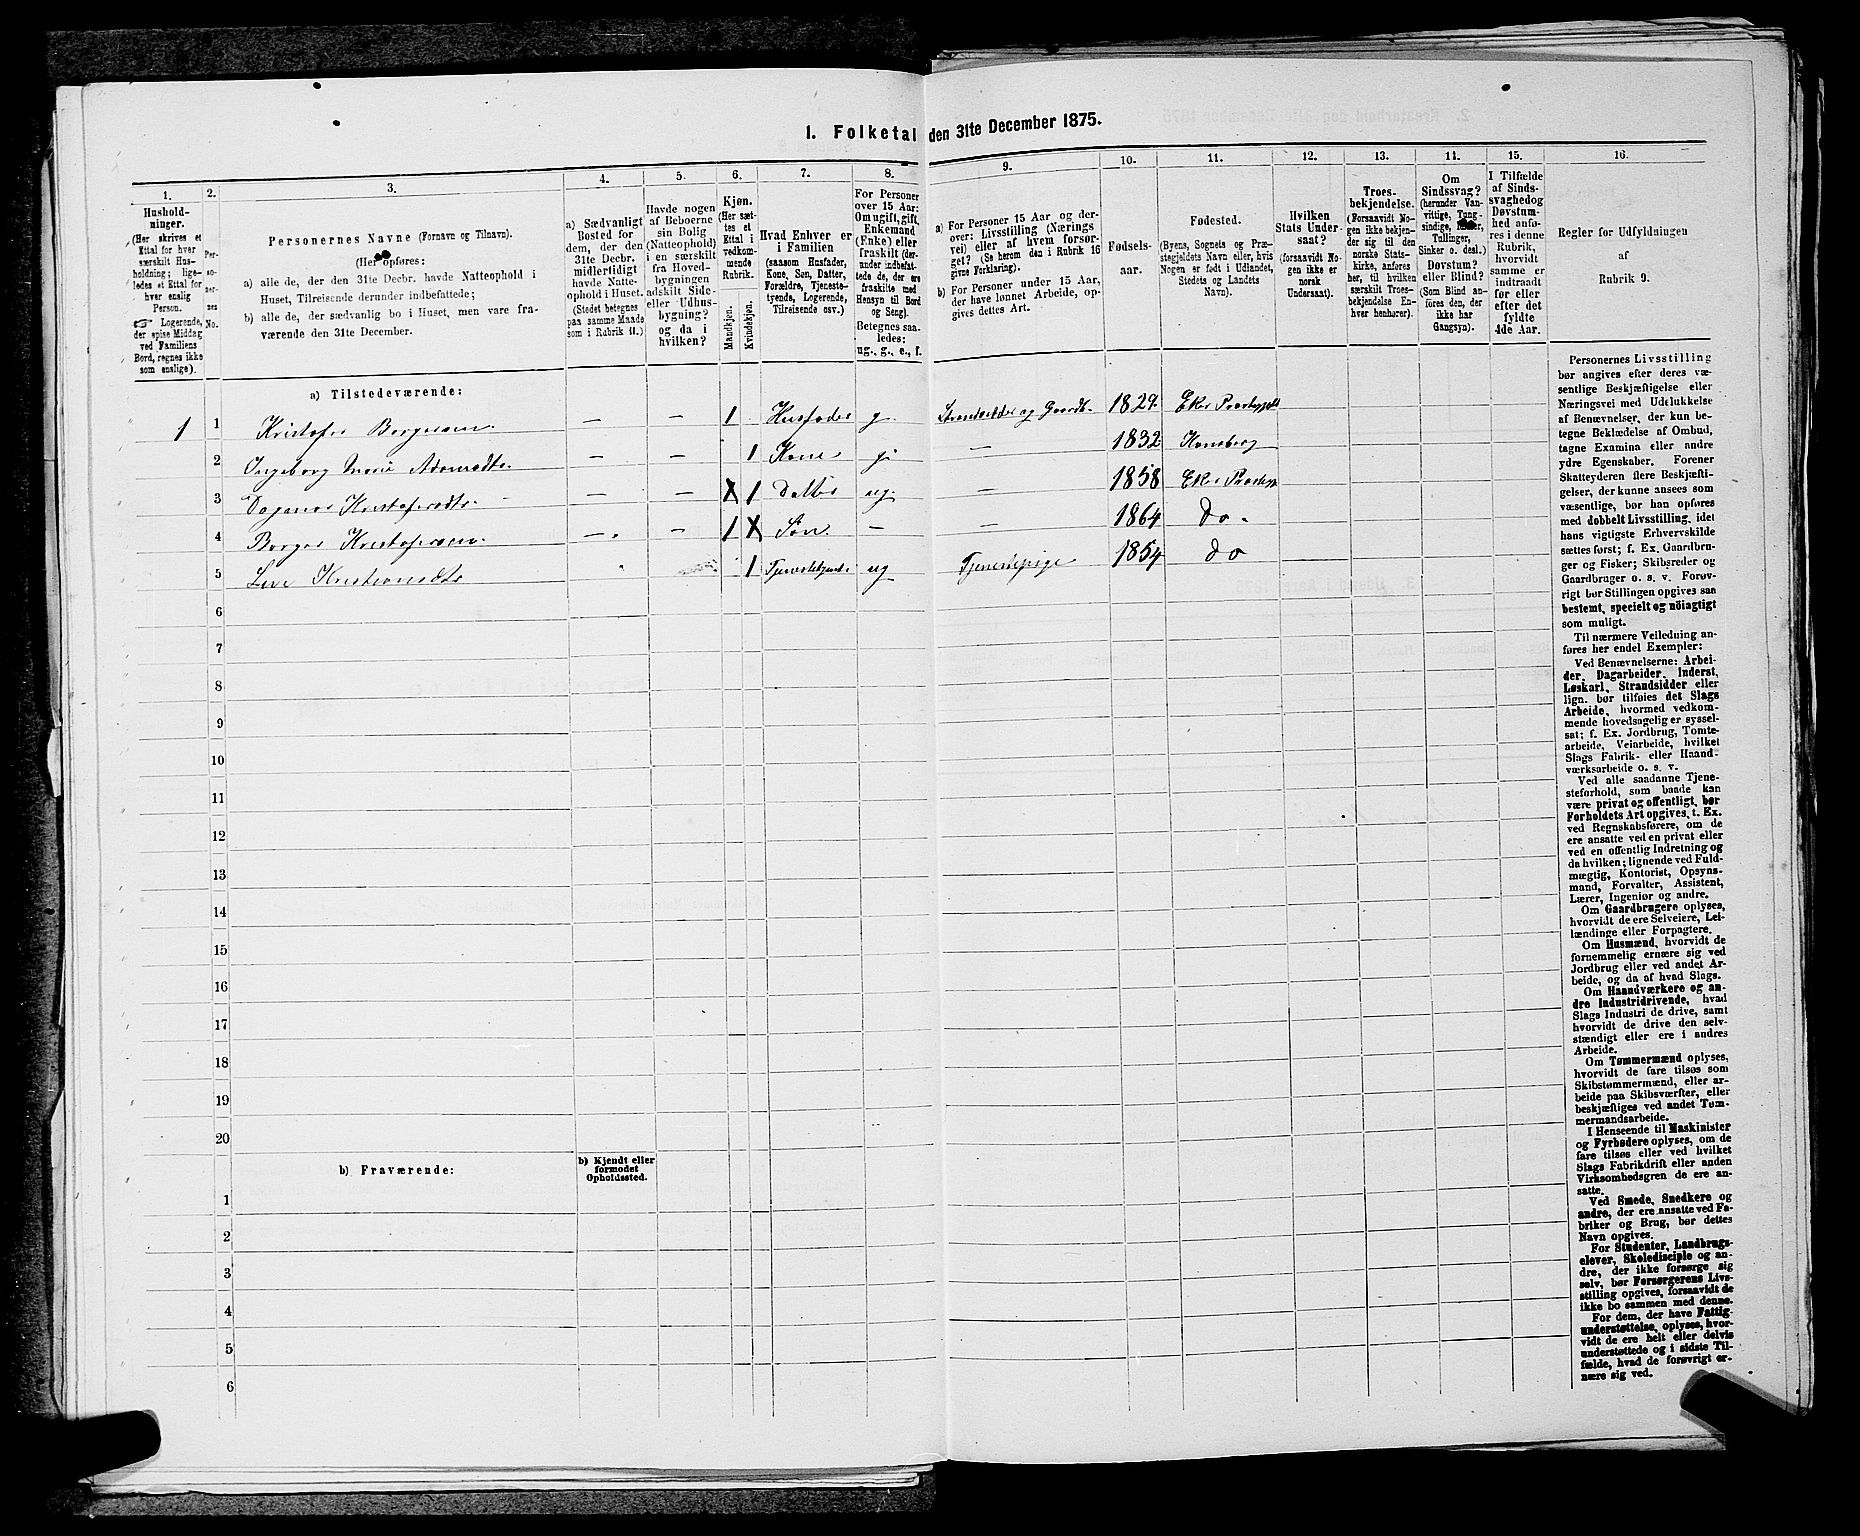 1. Folketal den 31te December 1875.
1.
2.
3.
4.
5.
6.
7.
8.
9.
10.
11.
12.
13.
14.
15.
16.
Hushold-
ninger.
(Her skrives et
Ettal for hver
særskilt Hus-
holdning; lige-
ledes et Ettal for
hver enslig
Person.
☞ Logerende,
der spise Middag
ved Familiens
Bord, regnes ikke
som enslige).
Per-
so-
ner-
nes
No.
Personernes Navne (Fornavn og Tilnavn).
(Her opføres:
a) alle de, der den 31te Decbr. havde Natteophold i
Huset, Tilreisende derunder indbefattede;
b) alle de, der sædvanlig bo i Huset, men vare fra-
værende den 31te December.
a) Sædvanligt
Bosted for
dem, der den
31te Decbr.
midlertidigt
havde Natte-
ophold i Huset.
(Stedet betegnes
paa samme Maade
som i Rubrik 11.)
Havde nogen
af Beboerne
sin Bolig
(Natteophold)
i en særskilt
fra Hoved-
bygningen
adskilt Side-
eller Udhus-
bygning?
og da i
hvilken?
Kjøn.
(Her sæt-
tes et
Ettal i
vedkom-
mende
Rubrik.
Mandkjøn.
Kvindekjøn.
Hvad Enhver er
i Familien
(saasom Husfader,
Kone, Søn, Datter,
Forældre, Tjeneste-
tyende, Logerende,
Tilreisende osv.)
For Personer
over 15 Aar:
Om ugift, gift,
Enkemand
(Enke) eller
fraskilt (der-
under indbefat-
tede de, der ere
fraskilte med
Hensyn til Bord
og Seng).
Betegnes saa-
ledes:
ug., g., e., f.
a) For Personer 15 Aar og der-
over: Livsstilling (Nærings
vei) eller af hvem forsør-
get? (Se herom den i Rubrik 16
givne Forklaring).
b) For Personer under 15 Aar,
der have lønnet Arbeide, op-
gives dettes Art.
Fødsels-
aar.
Fødested.
(Byens, Sognets og Præ-
stegjeldets Navn eller, hvis
Nogen er født i Udlandet,
Stedets og Landets
Navn).
Hvilken
Stats Under-
saat?
(forsaavidt No-
gen ikke er
norsk
Undersaat).
Troes-
bekjendelse.
(Forsaavidt No-
gen ikke bekjen-
der sig til den
norske Stats-
kirke, anføres
her, til hvilken
særskilt Troes-
bekjendelse En-
hver henhører).
Om
Sindssvag?
(herunder Van-
vittige, Tung-
sindige,
Tullinger,
Sinker o. desl.)
Døvstum?
eller Blind?
(Som Blind an-
føres den, der
ikke har
Gangsyn).
I Tilfælde
af Sinds-
svaghed og
Døvstum-
hed anfø-
res i denne
Rubrik,
hvorvidt
samme er
indtraadt
før eller
efter det
fyldte
4de Aar.
Regler for Udfyldningen
af
Rubrik 9.
a) Tilstedeværende:
1 1 Kristofer Borgersen — — 1 Husfader g Strandsidder og Gaardb. 1829. Eker Præstegjeld
2 Ingeborg Marie — — 1 Kone g — 1832 Konsberg
3 Kristofersdtr. — — X 1 Datter ug. — 1858 Eker Præstegj
4 Borger Kristofersen. — — 1 X Søn — — 1864 Do
5 Kristiansdtr 1 ug Tjenestepige 1854 do
6
7
8
9
10
11
12
13
14
15
16
17
18
19
20
b) Fraværende:
b) Kjendt eller
formodet
Opholdssted.
1
2
3
4
5
6
Personernes Livsstilling
bør angives efter deres væ-
sentlige Beskjæftigelse eller
Næringsvei med Udelukkelse
af Benævnelser, der kun be-
tegne Beklædelse af Ombud,
tagne Examina eller andre
ydre Egenskaber. Forener
Skatteyderen flere Beskjæfti-
gelser, der kunne ansees som
væsentlige, bør han opføres
med dobbelt Livsstilling, idet
hans vigtigste Erhvervskilde
sættes først; f. Ex. Gaardbru-
ger og Fisker; Skibsreder og
Gaardbruger o. s. v. Forøv-
rigt bør Stillingen opgives saa
bestemt, specielt og nöiagtigt
som muligt.
Til nærmere Veiledning an-
føres her endel Exempler:
Ved Benævnelserne: Arbei-
der, Dagarbeider, Inderst,
Løskarl, Strandsidder eller
lign. bør tilføies det Slags
Arbeide, hvormed vedkom-
mende hovedsagelig er syssel-
sat; f. Ex. Jordbrug, Tomte-
arbeide, Veiarbeide, hvilket
Slags Fabrik- eller Haand-
værksarbeide o. s. v.
Ved alle saadanne Tjene-
steforhold, som baade kan
være privat og offentligt, bør
Forholdets Art opgives, t. Ex.
ved Regnskabsførere, om de
ere ansatte ved en privat eller
ved en offentlig Indretning og
da hvilken; lignende ved Fuld-
mægtig, Kontorist, Opsyns-
mand, Forvalter, Assistent,
Lærer, Ingeniør og andre.
Om Gaardbrugere oplyses,
hvorvidt de ere Selveiere, Lei-
lændinge eller Forpagtere.
Om Husmænd, hvorvidt de
fornemmelig ernære sig ved
Jordbrug eller ved andet Ar-
beide, og da af hvad Slags.
Om Haandværkere og an-
dre Industridrivende, hvad
Slags Industri de drive, samt
hvorvidt de drive den selv-
stændigt eller ere i andres
Arbeide.
Om Tømmermænd oplyses,
hvorvidt de fare tilsøs som
Skibstømmermænd, eller ar-
beide paa Skibsværfter, eller
beskjæftiges ved andet Tøm-
mermandsarbeide.
I Henseende til Maskinister
og Fyrbødere oplyses, om de
fare tilsøs eller ved hvilket
Slags Fabrikdrift eller anden
Virksomhedsgren de ere an-
satte.
Ved Smede, Snedkere og
andre, der ere ansatte ved Fa-
briker og Brug, bør dettes
Navn opgives.
For Studenter, Landbrugs-
elever, Skoledisciple og an-
dre, der ikke forsørge sig
selv, bør Forsørgerens Livs-
stilling opgives, forsaavidt de
ikke bo sammen med denne.
For dem, der have Fattig-
understøttelse, oplyses, hvor-
vidt de ere helt eller delvis
understøttede og i sidste Til-
fælde, hvad de forøvrigt er-
nære sig ved.